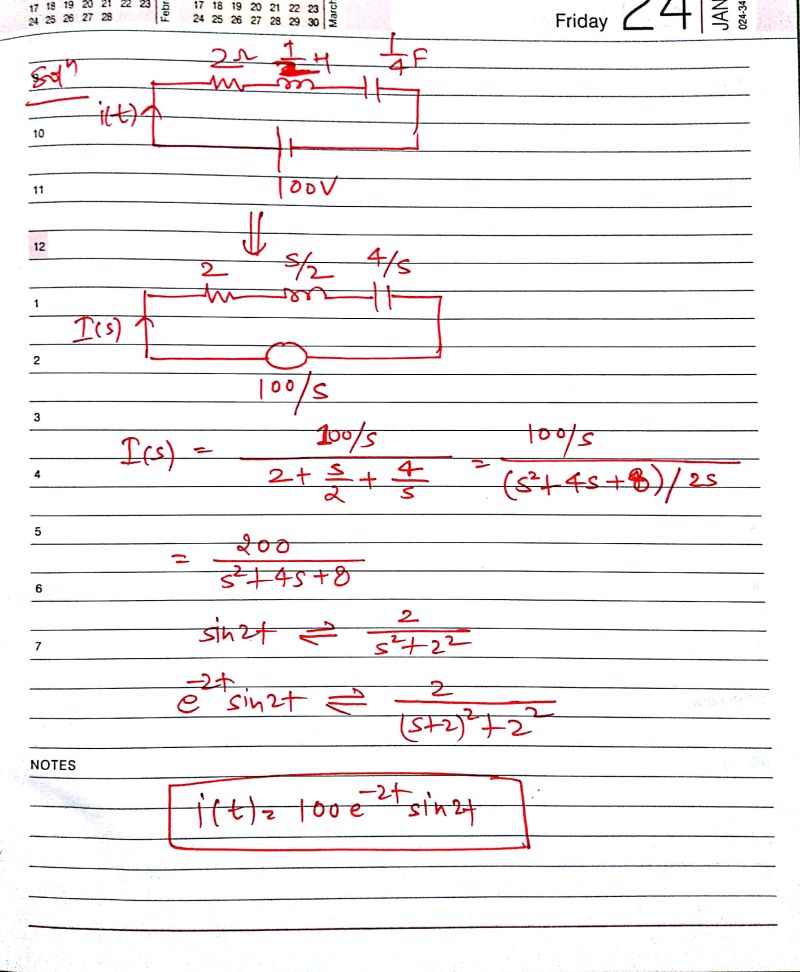 17 18 19 20 21 22 23
24 25 26 27 28
Febr
17 18 19 20 21 22 23
24 25 26 27 28 29 30
March
Friday 24
JAN
024-34
Solⁿ
2Ω 1/2 H 1/4 F
i(t)
10
100V
11
12
2 s/2 4/s
1
I(s)
2
100/s
3
I(s) = (100/s) / (2 + s/2 + 4/s) = (100/s) / ((s²+4s+8)/2s)
4
5
= 200 / (s²+4s+8)
6
sin2t ⇌ 2 / (s²+2²)
7
e^-2t sin2t ⇌ 2 / ((s+2)²+2²)
NOTES
i(t) = 100e^-2t sin2t